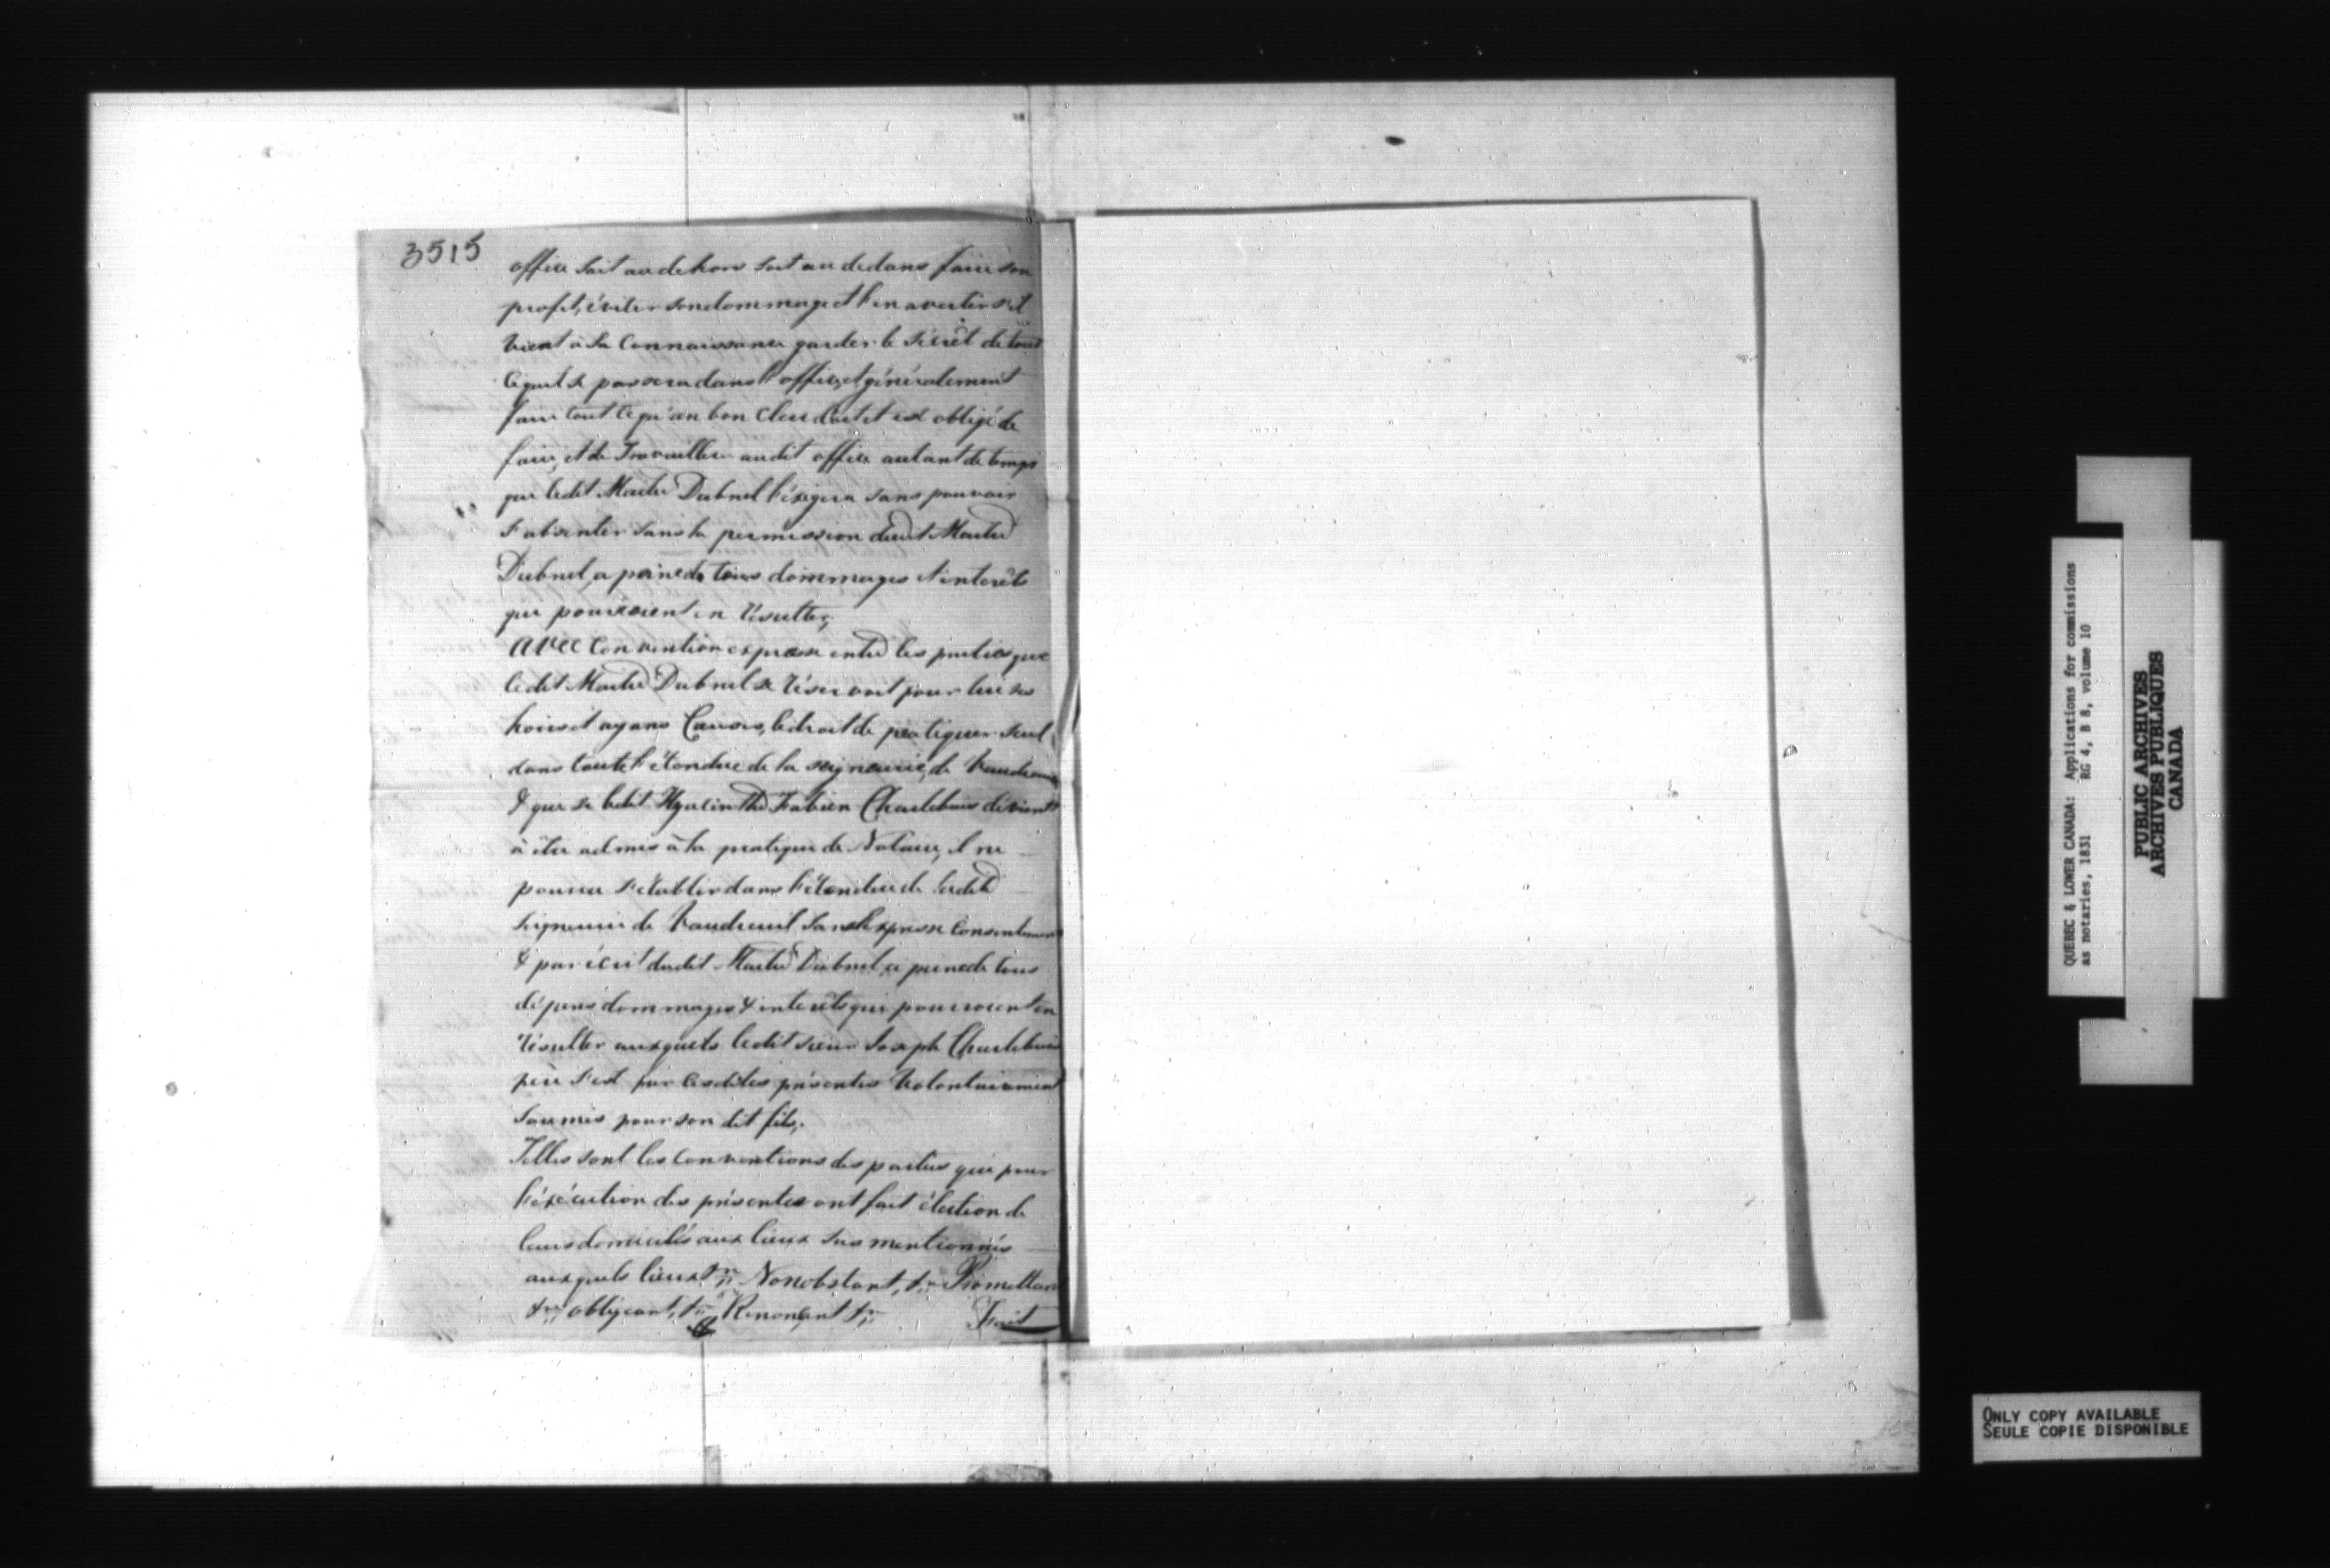 3515
office soit au dehors soit au dedans faire son
profit, éviter son dommage et l'en avertir s'il
vient à sa Connaissance garder le sécrèt de tout
ce qui se passera dans l'office, et généralement
faire tout ce qu'un bon Clerc doit et est obligé de
faire, et de Travailler audit office autant de temps
que ledit Maitre Dubrul l'éxigera sans pouvoir
s'absenter sans la permission dudit Maitre
Dubrul, a peine de tous dommages & interêts
qui pourroient en résulter,
Avec Convention expresse entre les parties que
ledit Maitre Dubrul se réservoit pour lui ses
hoirs et ayans Causes, le droit de pratiquer seul
dans toute l'étendue de la seigneurie, de Vaudreuil
& que si ledit Hyacinthe Fabien Charlebois dévient
à être admis à la pratique de Notaire, il ne
pourra s'établir dans l'étendue de ladite
Seigneurie de Vaudreuil sans l'expresse Consentement
& par écrit dudit Maitre Dubrul, a peine de tous
dépens dommages & interêts qui pourroient en
résulter auxquels ledit sieur Joseph Charlebois
père s'est par ces dites présentes Volontairement
soumis pour son dit fils,
Telles sont les conventions des parties qui pour
l'éxécution des présentes ont fait élection de
leurs domiciles aux lieux sus mentionnés
auxquels lieux &c Nonobstant, &c Promettant
&c obligeant, &c Renonçant &c
Fait
QUEBEC & LOWER CANADA: Applications for commissions
as notaries, 1831 RG 4, B 8, volume 10
PUBLIC ARCHIVES
ARCHIVES PUBLIQUES
CANADA
ONLY COPY AVAILABLE
SEULE COPIE DISPONIBLE